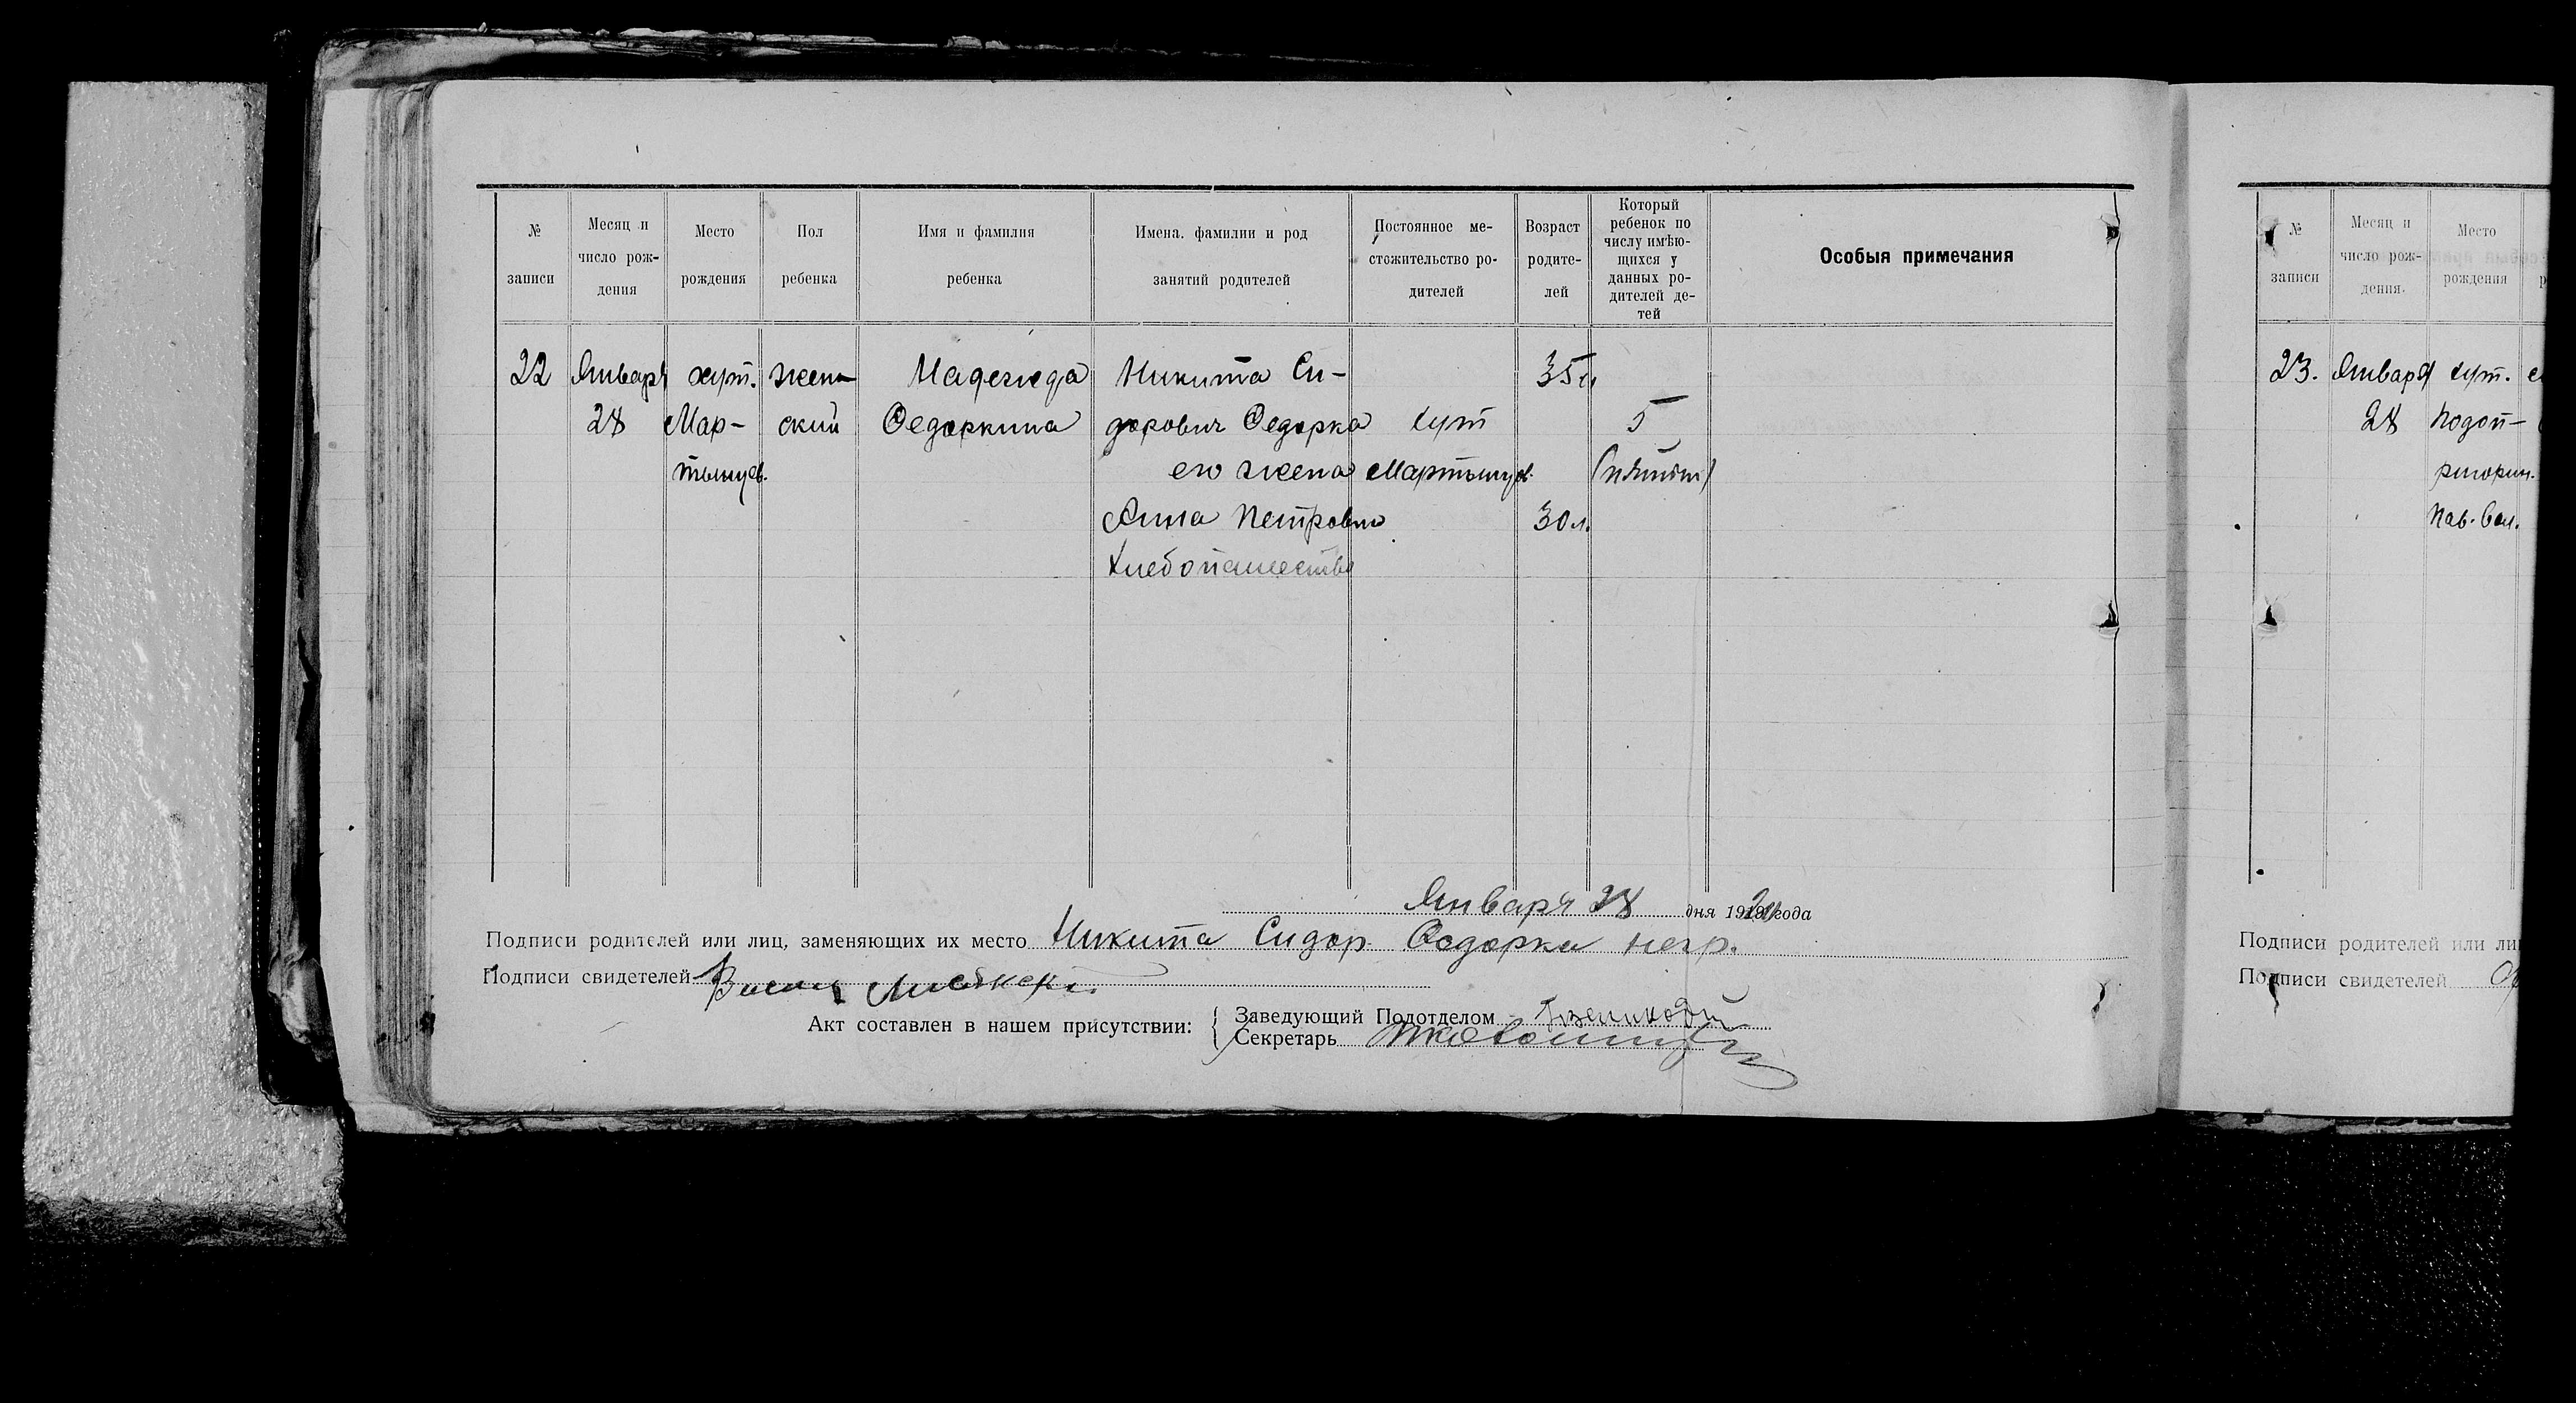 № записи
Месяц и число рож- дения
Место рождения
Пол ребенка
Имя и фамилия ребенка
Имена. фамилии и род занятий родителей
Постоянное ме- стожительство ро- дителей
Возраст родите- лей
Который ребенок по числу имѣю- щихся у данных ро- дителей де- тей
Особыя примечания
22 Январь хут. жен- Надежда Никита Си- 35 л.
28 Мар- ский Федоркина дорович Федорка хут 5
тынов. его жена Мартынов. (пятый)
Анна Петровна 30 л.
Хлебопашество
Января 28 дня 1920 года
Подписи родителей или лиц, заменяющих их место Никита Сидор. Федорка негр.
Подписи свидетелей
Акт составлен в нашем присутствии:
Заведующий Подотделом
Секретарь
№ записи
Месяц и число рож- дения.
Место рождения
23. Января хут.
28
Пав. вол.
Подписи родителей или ли
Подписи свидетелей